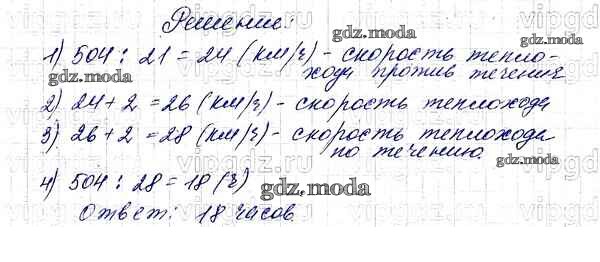 Решение:
1) 504 : 21 = 24 (км/ч) - скорость тепло-
хода против течения
2) 24 + 2 = 26 (км/ч) - скорость теплохода
3) 26 + 2 = 28 (км/ч) - скорость теплохода
по течению.
4) 504 : 28 = 18 (ч)
Ответ: 18 часов
gdz.moda
gdz.moda
gdz.moda
gdz.moda
gdz.moda
gdz.moda
gdz.moda
vipgdz
vipgdz
vipgdz